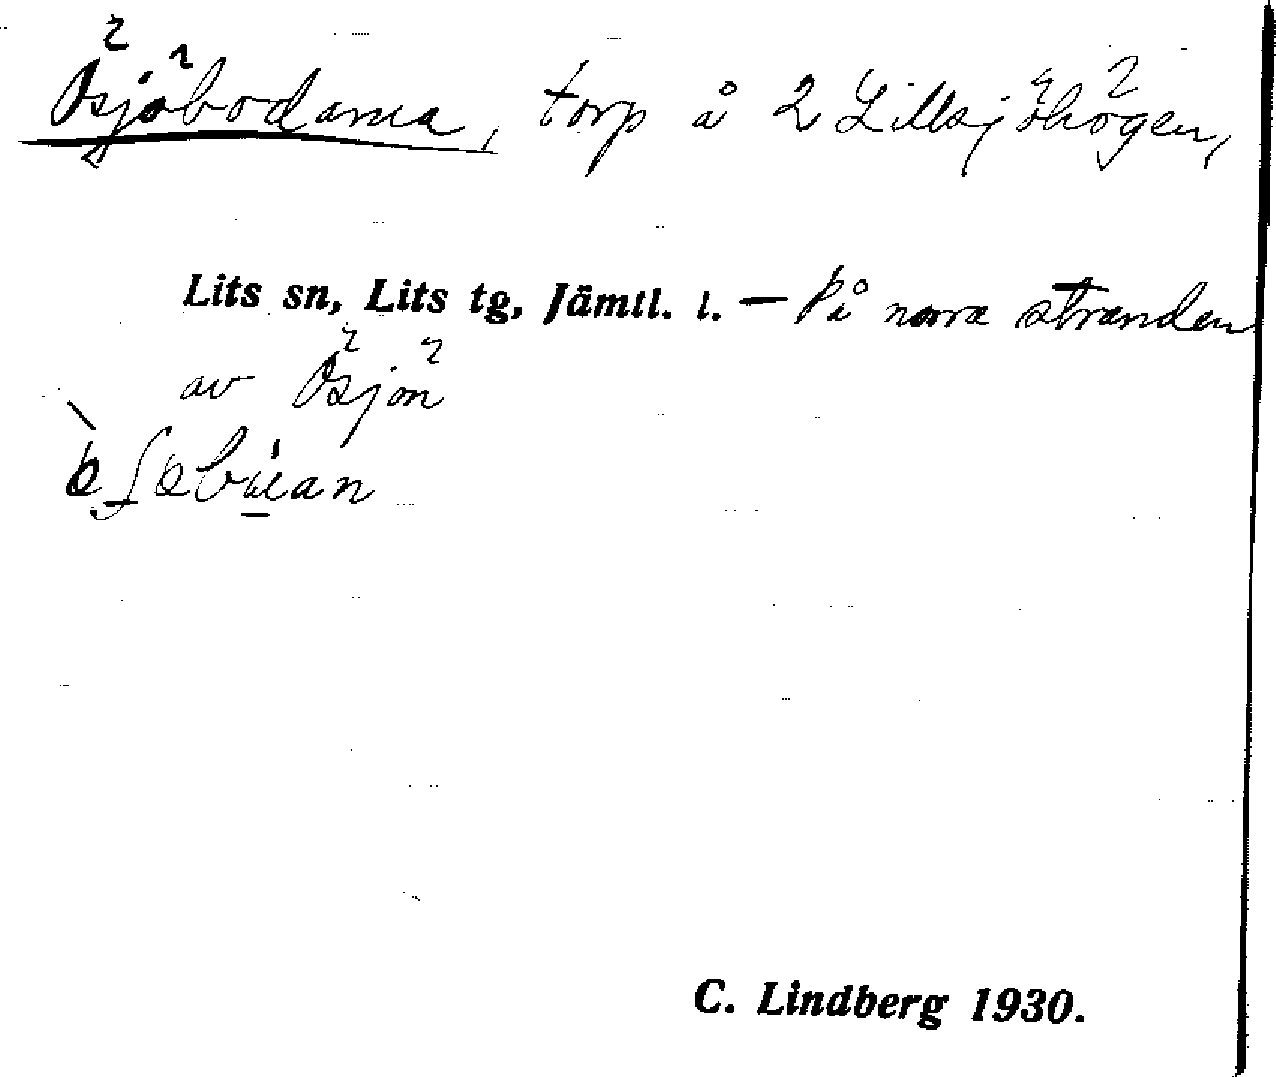 Ösjöbodarna, torp å 2 Lillsjöhögen,
Lits sn, Lits tg, Jämtl. l. — På norra stranden
av Ösjön
C. Lindberg 1930.